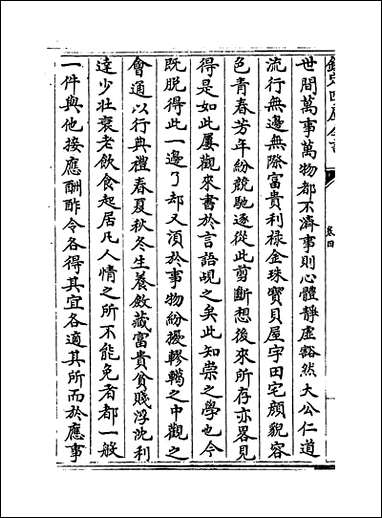 欽定四庫全書
卷四
世間萬事萬物都不濟事則心體靜虛豁然大公仁道
流行無邊無際富貴利祿金珠寶貝屋宇田宅顔貌容
色青春芳年紛競馳逐從此剪斷想後來所存亦畧見
得是如此屢觀來書於言語覘之矣此知崇之學也今
既脱得此一邊了却又湏於事物紛擾轇轕之中觀之
會通以行典禮春夏秋冬生養斂藏富貴貧賤浮沈利
達少壯衰老飲食起居凡人情之所不能免者都一般
一件與他接應酬酢令各得其宜各適其所而於應事